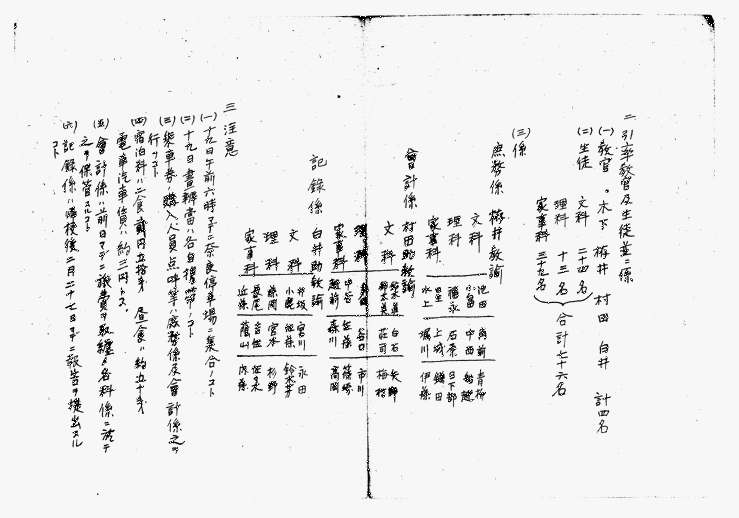 二 引率教官及生徒並ニ係
(一) 教官 木下 梅井 村田 白井 計四名
(二) 生徒
文科 二十四名
理科 十三名
家事科 三十九名
合計七十六名
(三) 係
庶務係 梅井教諭
文科 池田 角前 青柳
理科 福永 石原 日下部
家事科 水上 堀川 伊藤
會計係 村田助教諭
文科 白石 矢野 荘司 梅枝
理科 谷口 市川
家事科 中谷 佐藤 篠崎 越前 森川 高岡
記録係 白井助教諭
文科 宮川 永田 小幡 佐藤 鈴木芳
理科 藤岡 宮本 杉野
家事科 長尾 吉住 佐々木 近藤 蔭山 内藤
三 注意
(一) 十九日午前六時マデニ奈良停車場ニ集合ノコト
(二) 十九日晝辨當ハ各自携帯ノコト
(三) 乗車券ノ購入人員点呼等ハ庶務係及會計係之ヲ
行フコト
(四) 宿泊料ハ二食貮円五拾銭 昼食ハ約五十銭
電車汽車賃ハ約三円トス
(五) 會計係ハ前日マデニ旅費ヲ取纏メ各科係ニ於テ
之ヲ保管スルコト
(六) 記録係ハ帰校後二月二十七日マデニ報告ヲ提出スル
コト